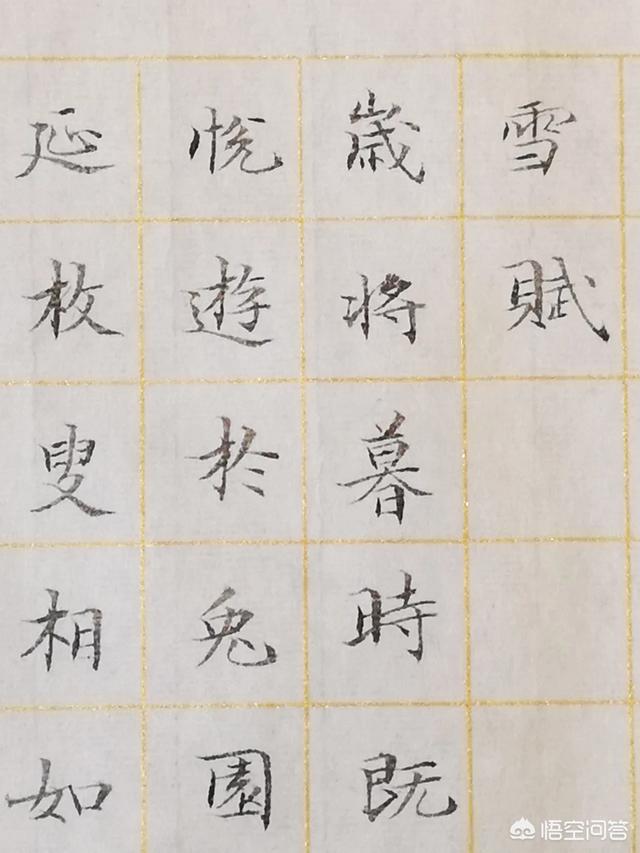 雪賦
歲將暮時既
悅遊於兔園
延枚叟相如
悟空问答